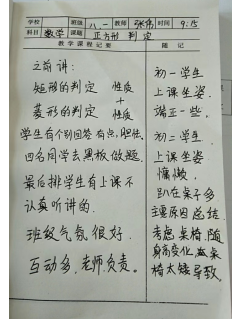 学校 班级 八.一 教师 张伟 时间 9:15
科目 数学 课题 正方形 判定
教学课程记要
随记
之前讲:
矩形的判定 性质
+
菱形的判定 性质
学生有个别回答有点,胆怯.
四名同学去黑板做题.
最后排学生有上课不
认真听讲的.
班级气氛很好.
互动多.老师负责.
初一学生
上课坐姿
端正一些.
初二学生
上课坐姿
慵懒.
趴在桌子多
主要原因总结.
考虑桌椅.随
身高变化.桌
椅太矮导致.